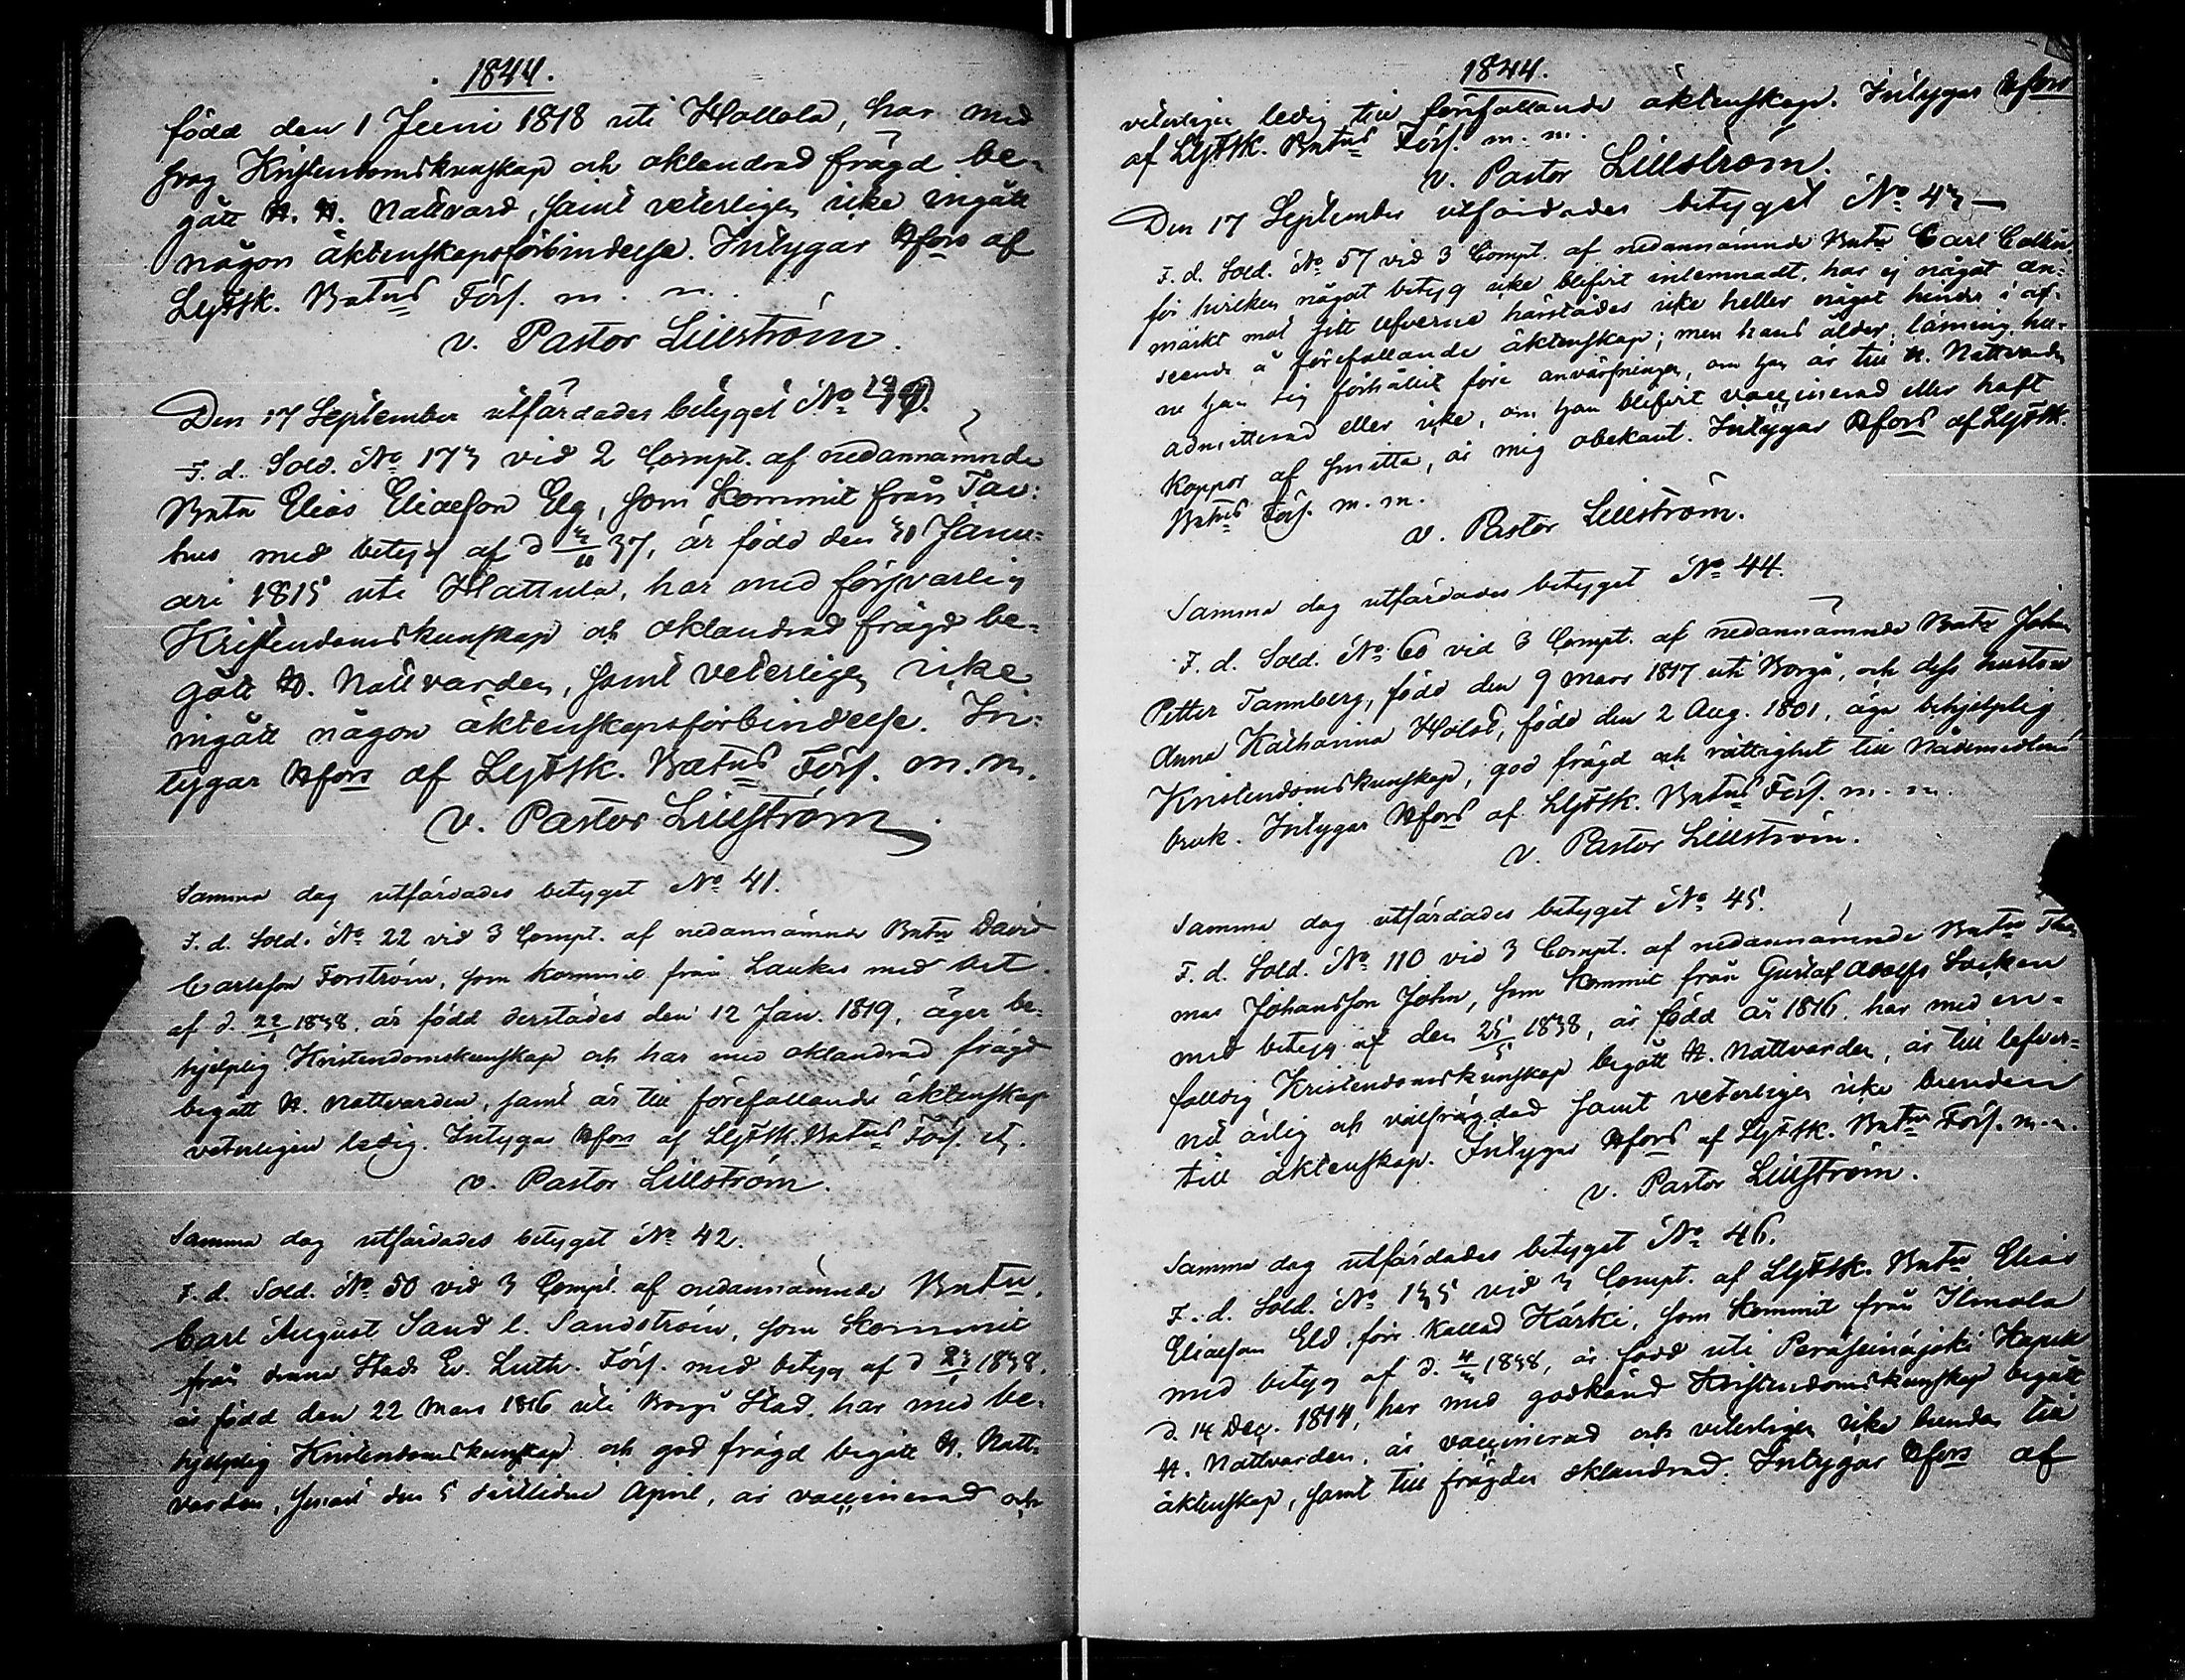 1844.
född den 1 Juni 1818 uti Hollola, har med
svag Kristendomskunskap och oklandrad frägd be-
gått H. H. Nattvard, samt veterligen icke ingått
någon äktenskapsförbindelse. Intygar Hfors af
LlfFSk. Batns Förs. m. m.
v. Pastor Lillström.
Den 17 September utfärdades betyget No
F. d. Sold. No 173 vid 2 Compt. af nedannämnde
Batn Elias Eliasson Elg, som kommit från Tav:
hus med betyg af d 37, är född den 30 Janu=
ari 1815 uti Hattula, har med försvarlig
Kristendomskunskap och oklandrad frägd be-
gått H. Nattvarden, samt veterligen icke
ingått någon äktenskapsförbindelse. In-
tygar Hfors af LlfFSk. Batns Förs. m. m.
v. Pastor Lillström
Samma dag utfärdades betyget No 41.
F. d. Sold. No 22 vid 3 Compt. af nedannämnde Batn David
Carlsson Forström, som kommit från Laukas med bet.
af d. 22/1 1838, är född derstädes den 12 Jan. 1819, äger be-
hjelplig Kristendomskunskap och har med oklandrad frägd
begått H. Nattvarden, samt är till förefallande äktenskap
veterligen ledig. Intygar Hfors af LlfFSk. Batns Förs.
v. Pastor Lillström.
Samma dag utfärdades betyget No 42.
F. d. Sold. No 50 vid 3 Compt. af nedannämnde Batn.
Carl August Sand l. Sandström, som kommit
från denna Stads Ev. Luth. Förs. med betyg af d 1838.
är född den 22 Mars 1816 uti Borgå Stad, har med be-
hjelplig Kristendomskunskap och god frägd begått H. Natt-
varden, senast den 5 sistlidne April, är vaccinerad och
1844.
veterligen ledig till förefallande äktenskap. Intygar Hfors
af LlfFSk. Batns Förs. m. m.
v. Pastor Lillström.
Den 17 September utfärdades betyget No 43
F. d. Sold. No 57 vid 3 Compt. af nedannämnde Batn Carl
för hvilken något betyg icke blifvit inlemnadt, har ej något an-
märkt mot sitt lefverne härstädes icke heller något hinder i af-
seende å förefallande äktenskap; men hans ålder, läsning, hu-
ru han sig förhållit före anvärfningen, om han är till H. Nattvarden
admitterad eller icke, om han blifvit vaccinerad eller haft
koppor af smitta, är mig obekant. Intygar Hfors af LlfFSk.
Batns Förs. m. m.
v. Pastor Lillström.
Samma dag utfärdades betyget No 44.
F. d. Sold. No 60 vid 3 Compt. af nedannämnde Batn Johan
Petter Tannberg, född den 9 Mars 1817 uti Borgå, och dess hustru
Anna Katharina Holst, född den 2 Aug. 1801, äga behjelplig
Kristendomskunskap, god frägd och rättighet till Nådemedlens
bruk. Intygar Hfors af LlfFSk. Batns Förs. m. m.
v. Pastor Lillström.
Samma dag utfärdades betyget No 45.
F. d. Sold. No 110 vid 3 Compt. af nedannämnde Batn Tho-
mas Johansson John, som kommit från Gustaf Adolfs Socken
med betyg af den 25/5 1838, är född år 1816, har med en-
faldig Kristendomskunskap begått H. Nattvarden, är till lefver-
net ärlig och välfrägdad samt veterligen icke bunden
till äktenskap. Intygar Hfors af LlfFSk. Batns Förs. m. m.
v. Pastor Lillström.
Samma dag utfärdades betyget No 46.
F. d. Sold. No 135 vid 3 Compt. af LlfFSk. Batn Elias
Eliasson Eld, förr kallad Härki, som kommit från Ilmola
med betyg af d. 1838, är född uti Peräseinäjoki Kapell
d. 14 Dec. 1814, har med godkänd Kristendomskunskap begått
H. Nattvarden, är vaccinerad och veterligen icke bunden till
äktenskap, samt till frägden oklandrad. Intygar Hfors af